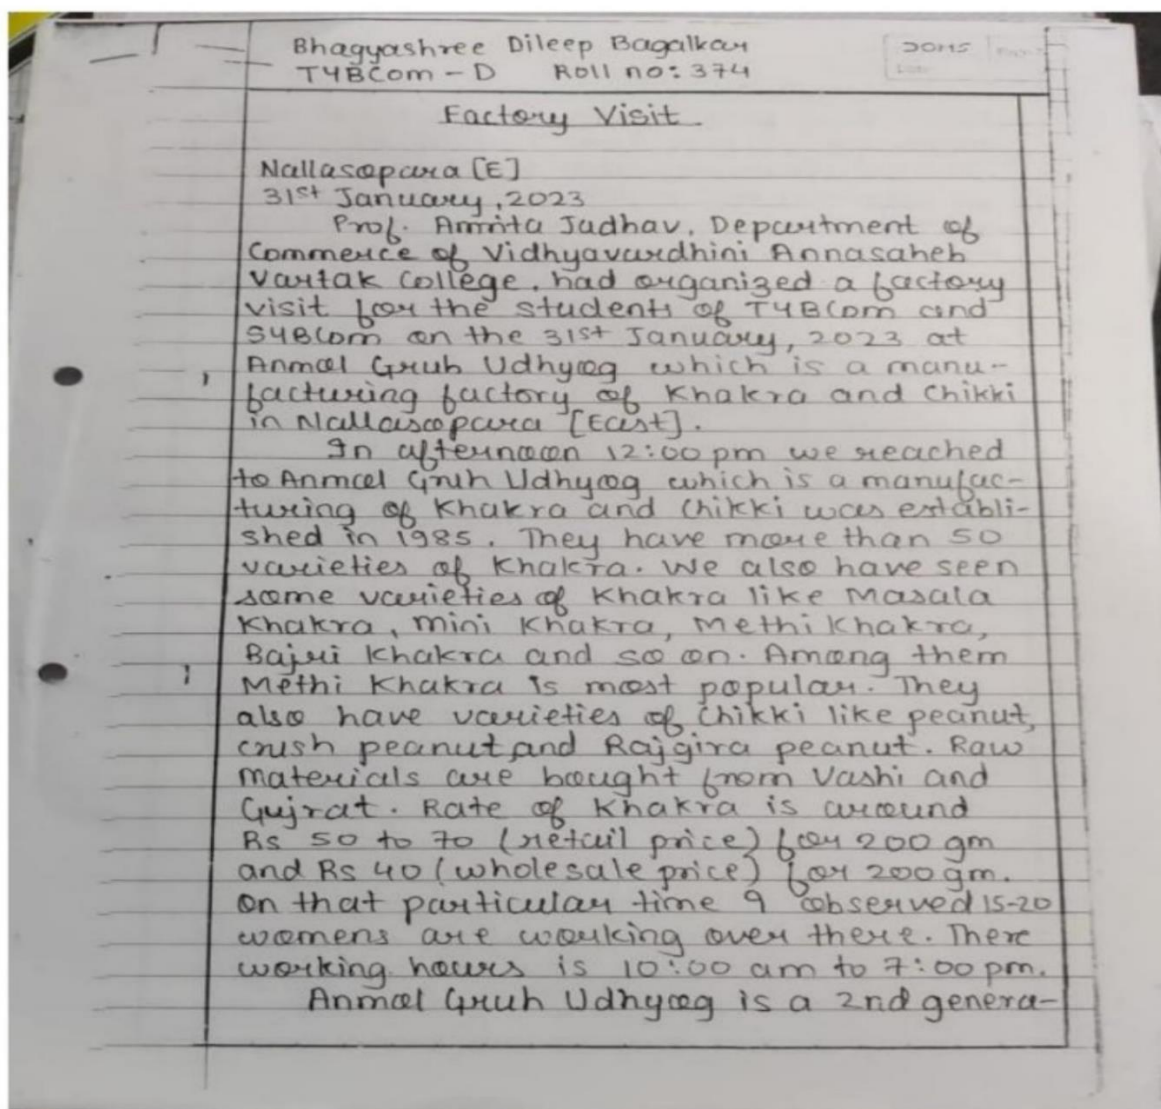 Bhagyashree Dileep Bagalkar
TYBCom - D Roll no: 374
Factory Visit
Nallasopara [E]
31st January, 2023
Prof. Amrita Jadhav, Department of
Commerce of Vidhyavardhini Annasaheb
Vartak College, had organized a factory
visit for the students of TYBCom and
SYBCom on the 31st January, 2023 at
Anmol Gruh Udhyog which is a manu-
facturing factory of Khakra and Chikki
in Nallasopara [East].
In afternoon 12:00 pm we reached
to Anmol Gruh Udhyog which is a manufac-
turing of Khakra and Chikki was establi-
shed in 1985. They have more than 50
varieties of Khakra. We also have seen
some varieties of Khakra like Masala
Khakra, mini Khakra, Methi Khakra,
Bajri Khakra and so on. Among them
Methi Khakra is most popular. They
also have varieties of Chikki like peanut,
crush peanut, and Rajgira peanut. Raw
materials are bought from Vashi and
Gujrat. Rate of Khakra is around
Rs 50 to 70 (retail price) for 200 gm
and Rs 40 (wholesale price) for 200 gm.
On that particular time I observed 15-20
womens are working over there. There
working hours is 10:00 am to 7:00 pm.
Anmol Gruh Udhyog is a 2nd genera-